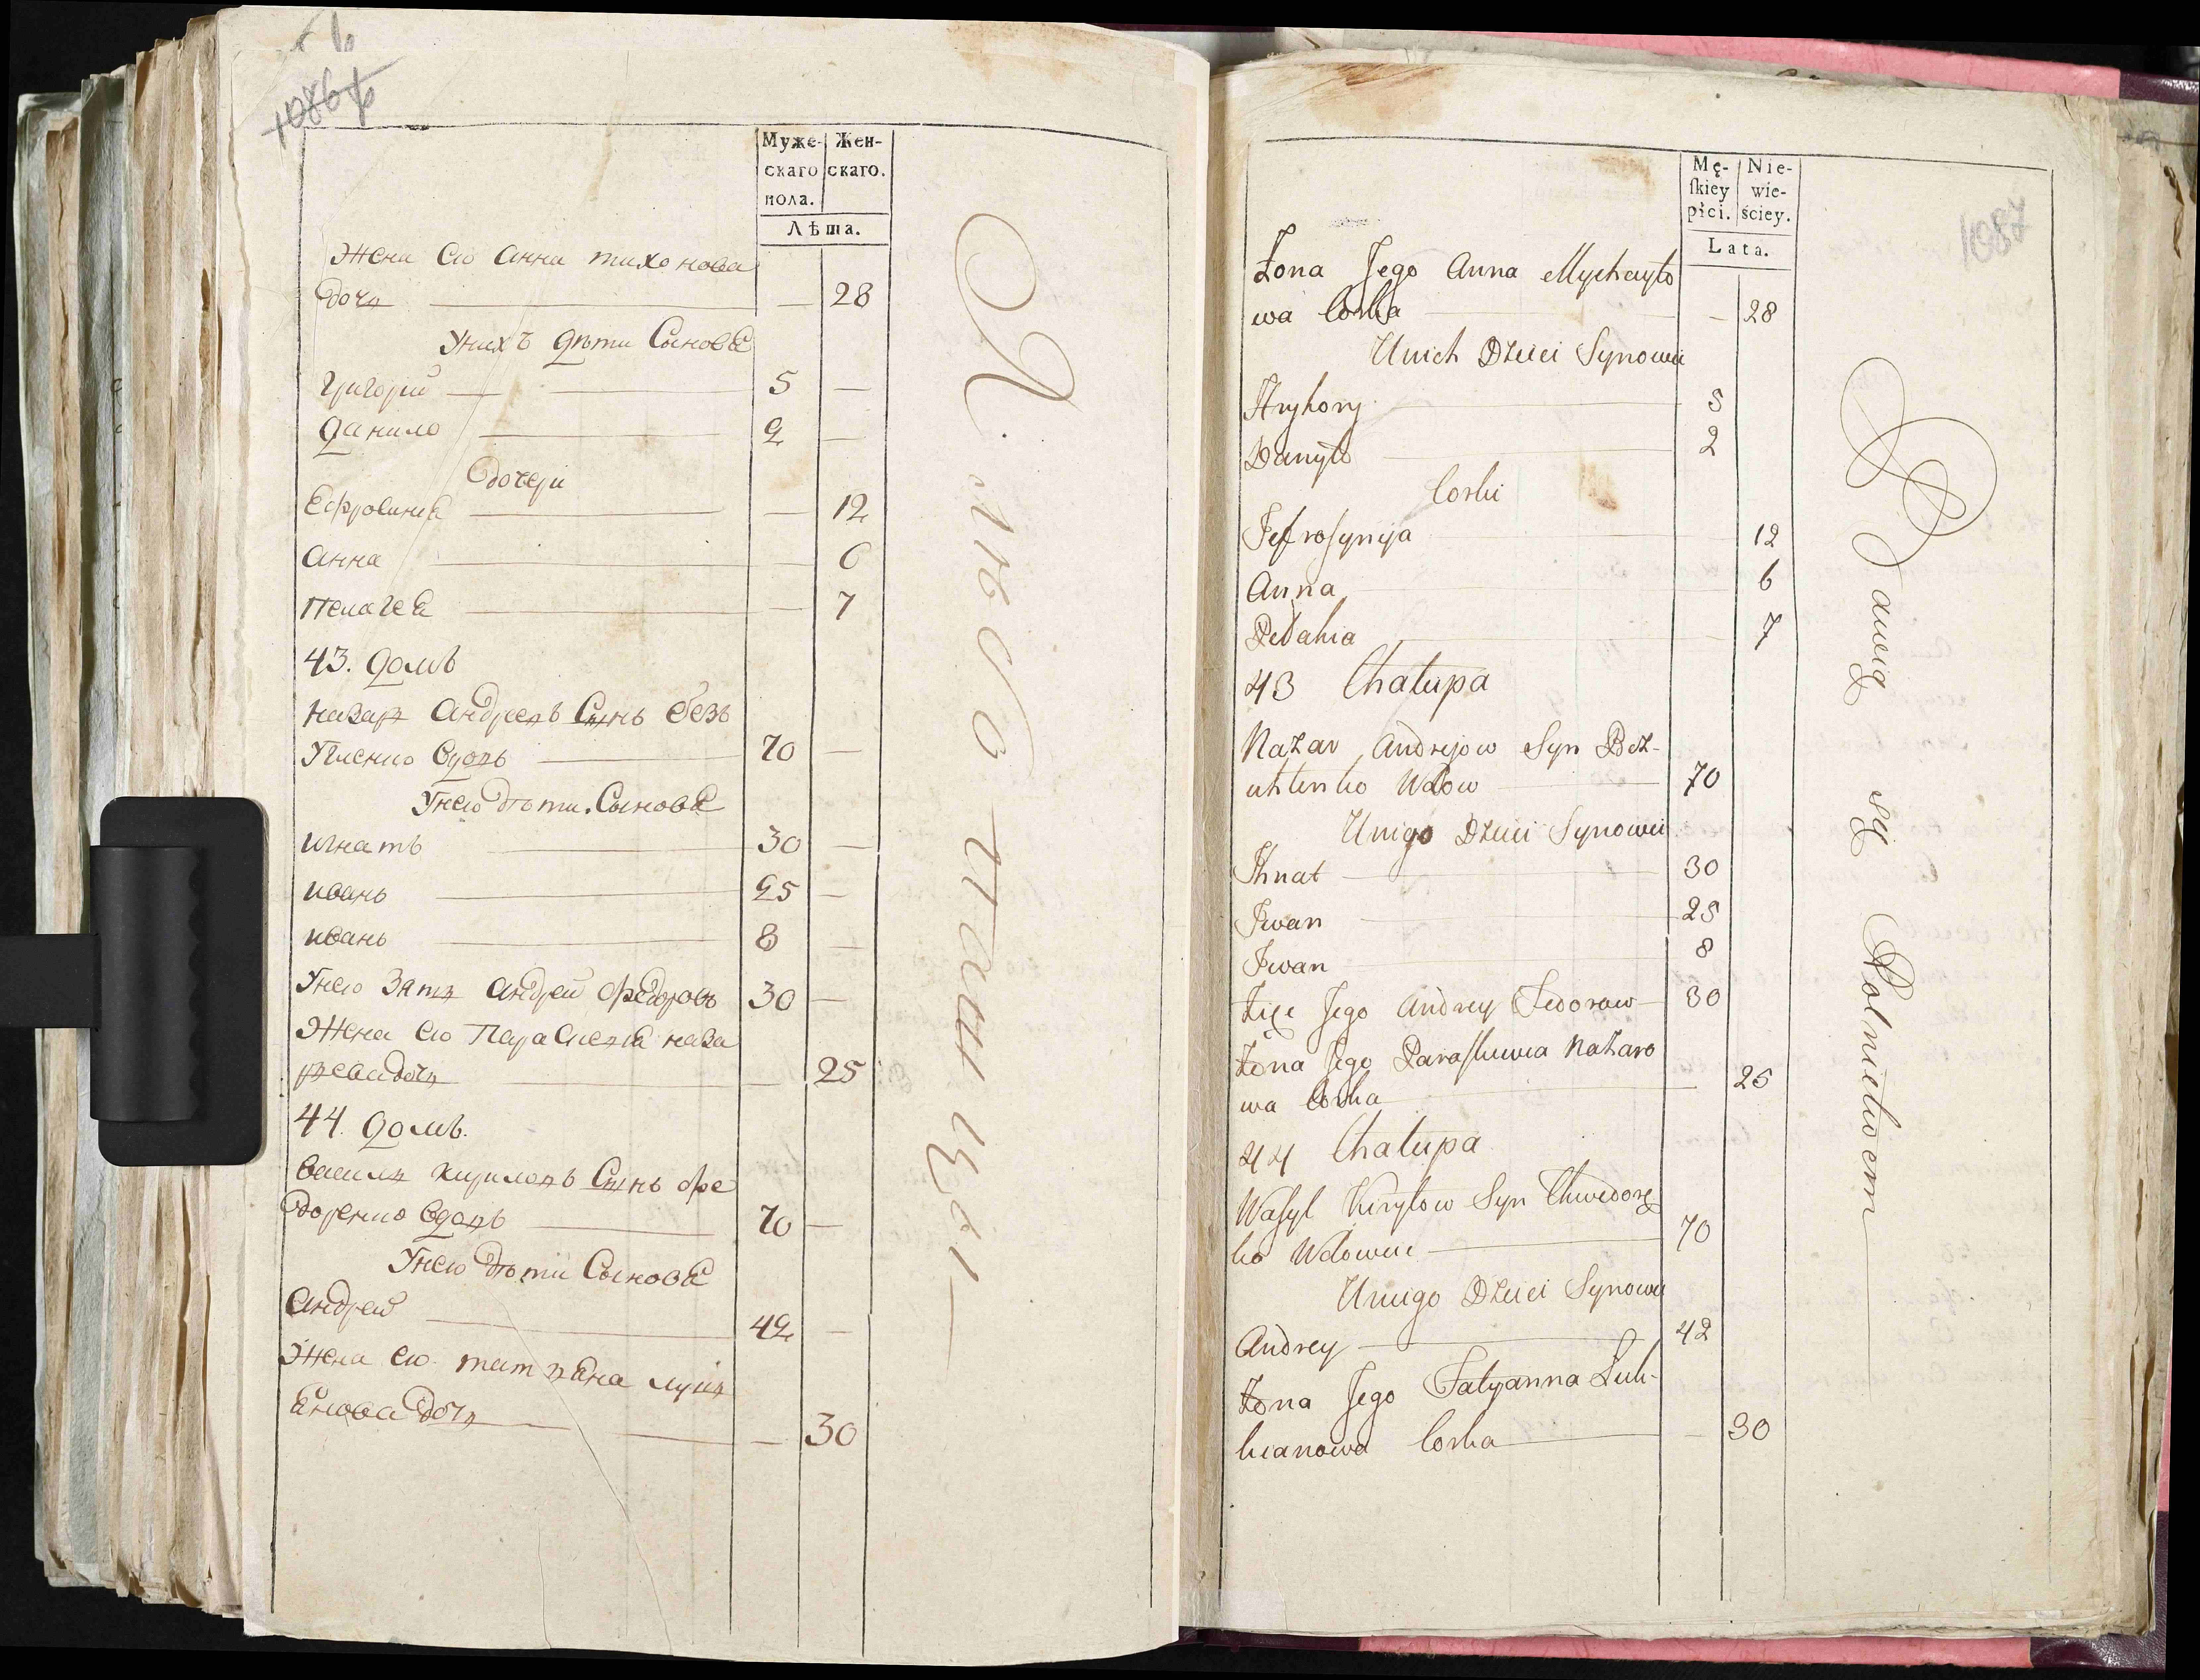 1086
Муже-
скаго
пола.
Жен-
скаго.
Лѣта.
Жена его анна тихонова
дочь — 28
Унихъ дѣти Сыновѣ
григорий 5 —
данило 2 —
дочери
Ефросиниѣ — 12
анна — 6
Пелагеѣ — 7
43. домъ
назаръ андреевъ Сынъ безъ
Укленко вдовъ 70 —
Унего дѣти Сыновѣ
игнатъ 30 —
иванъ 25 —
иванъ 8 —
Унего Зять андрей федоровъ 30 —
Жена его Парасковиѣ наза
ровадочь — 25
44. домъ.
василь кириловъ Сынъ фе
доренко вдовъ 70 —
Унего дѣти Сыновѣ
андрей 42 —
Жена его татьѣна лукь
ѣнова дочь — 30
Хлибопашцы
1087
Mę-
skiey
płci.
Nie-
wie-
ściey.
Lata.
Żona Jego Anna Mychayło
wa Corka — 28
Unich Dzieci Synowie
Hryhory 5
Danyło 2
Corki
Jefrosynija 12
Anna 6
Pelahia 7
43 Chałupa
Nazar Andrejow Syn Bez-
uhlenko Wdow 70
Uniego Dzieci Synowie
Ihnat 30
Iwan 25
Iwan 8
Zięć Jego Andrey Fedorow 30
Żona Jego Paraskiewia Nazaro
wa Corka — 25
44 Chałupa
Wasyl Kiryłow Syn Chwedorę
ko Wdowiec 70
Uniego Dzieci Synowie
Andrey 42
Żona Jego Tatyanna Łuk-
kianowa Corka — 30
Bawią się Rolnictwem